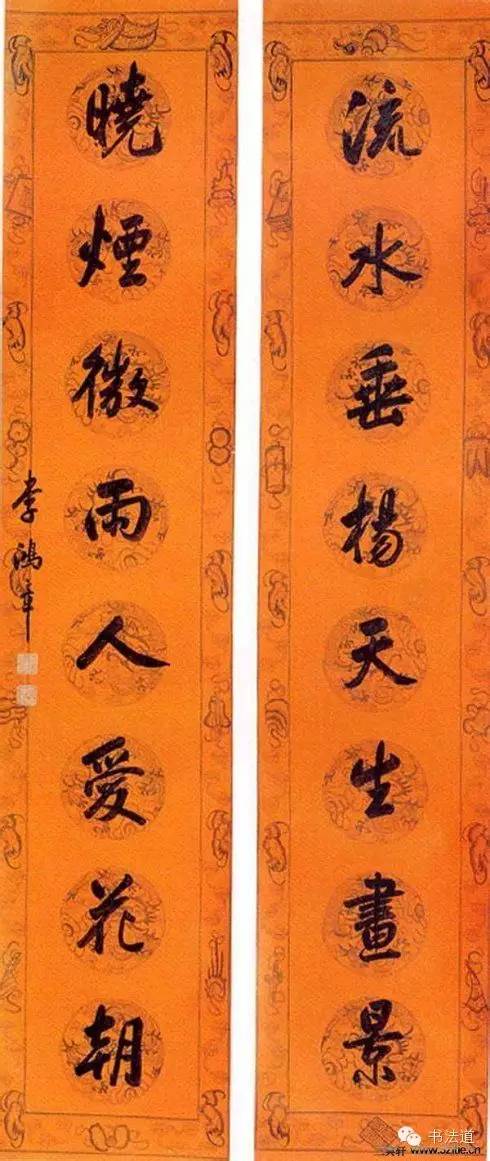 流水垂楊天生畫景
曉煙微雨人愛花朝
李鴻章
书法道